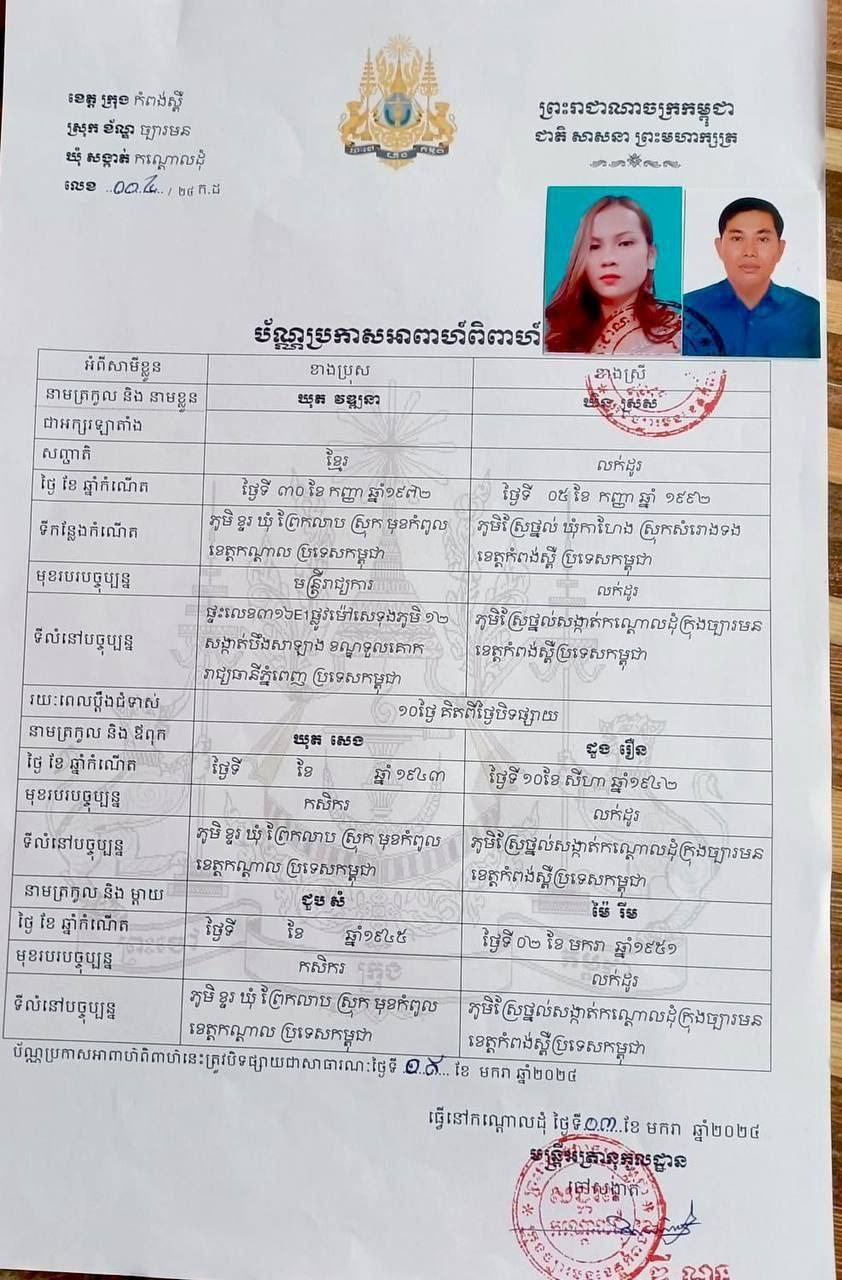 ខេត្ត ក្រុង កំពង់ស្ពឺ
ស្រុក ខ័ណ្ឌ ច្បារមន
ឃុំ សង្កាត់ កណ្ដោលដុំ
លេខ ..០០៤.../ ២៤ ក.ដ
ព្រះរាជាណាចក្រកម្ពុជា
ជាតិ សាសនា ព្រះមហាក្សត្រ
ប័ណ្ណប្រកាសអាពាហ៍ពិពាហ៍
អំពីសាមីខ្លួន ខាងប្រុស ខាងស្រី
នាមត្រកូល និង នាមខ្លួន ឃុត វឌ្ឍនា ឃិន ស្រស់
ជាអក្សរឡាតាំង
សញ្ជាតិ ខ្មែរ លក់ដូរ
ថ្ងៃ ខែ ឆ្នាំកំណើត ថ្ងៃទី ៣០ ខែ កញ្ញា ឆ្នាំ១៩៧២ ថ្ងៃទី ០៥ ខែ កញ្ញា ឆ្នាំ ១៩៩២
ទីកន្លែងកំណើត ភូមិ ខ្ទរ ឃុំ ព្រែកលាប ស្រុក មុខកំពូល ខេត្តកណ្ដាល ប្រទេសកម្ពុជា ភូមិស្រែថ្នល់ ឃុំកាហែង ស្រុកសំរោងទង ខេត្តកំពង់ស្ពឺ ប្រទេសកម្ពុជា
មុខរបរបច្ចុប្បន្ន មន្ត្រីរាជ្យការ លក់ដូរ
ទីលំនៅបច្ចុប្បន្ន ផ្ទះលេខ៣១៦E1ផ្លូវម៉ៅសេទុងភូមិ ១២ សង្កាត់បឹងសាឡាង ខណ្ឌទួលគោក រាជ្យធានីភ្នំពេញ ប្រទេសកម្ពុជា ភូមិស្រែថ្នល់សង្កាត់កណ្ដោលដុំក្រុងច្បារមន ខេត្តកំពង់ស្ពឺប្រទេសកម្ពុជា
រយៈពេលប្ដឹងជំទាស់ ១០ថ្ងៃ គិតពីថ្ងៃបិទផ្សាយ
នាមត្រកូល និង ឪពុក ឃុត សេង ដួង រឿន
ថ្ងៃ ខែ ឆ្នាំកំណើត ថ្ងៃទី ខែ ឆ្នាំ ១៩៤៣ ថ្ងៃទី ១០ខែ សីហា ឆ្នាំ១៩៤២
មុខរបរបច្ចុប្បន្ន កសិករ លក់ដូរ
ទីលំនៅបច្ចុប្បន្ន ភូមិ ខ្ទរ ឃុំ ព្រែកលាប ស្រុក មុខកំពូល ខេត្តកណ្ដាល ប្រទេសកម្ពុជា ភូមិស្រែថ្នល់សង្កាត់កណ្ដោលដុំក្រុងច្បារមន ខេត្តកំពង់ស្ពឺប្រទេសកម្ពុជា
នាមត្រកូល និង ម្ដាយ ជួប សំ ម៉ៃ រីម
ថ្ងៃ ខែ ឆ្នាំកំណើត ថ្ងៃទី ខែ ឆ្នាំ១៩៤៥ ថ្ងៃទី ០២ ខែ មករា ឆ្នាំ១៩៥១
មុខរបរបច្ចុប្បន្ន កសិករ លក់ដូរ
ទីលំនៅបច្ចុប្បន្ន ភូមិ ខ្ទរ ឃុំ ព្រែកលាប ស្រុក មុខកំពូល ខេត្តកណ្ដាល ប្រទេសកម្ពុជា ភូមិស្រែថ្នល់សង្កាត់កណ្ដោលដុំក្រុងច្បារមន ខេត្តកំពង់ស្ពឺប្រទេសកម្ពុជា
ប័ណ្ណប្រកាសអាពាហ៍ពិពាហ៍នេះត្រូវបិទផ្សាយជាសាធារណៈថ្ងៃទី .១៩... ខែ មករា ឆ្នាំ២០២៤
ធ្វើនៅកណ្ដោលដុំ ថ្ងៃទី.១៣..ខែ មករា ឆ្នាំ២០២៤
មន្ត្រីអត្រានុកូលដ្ឋាន
ចៅសង្កាត់